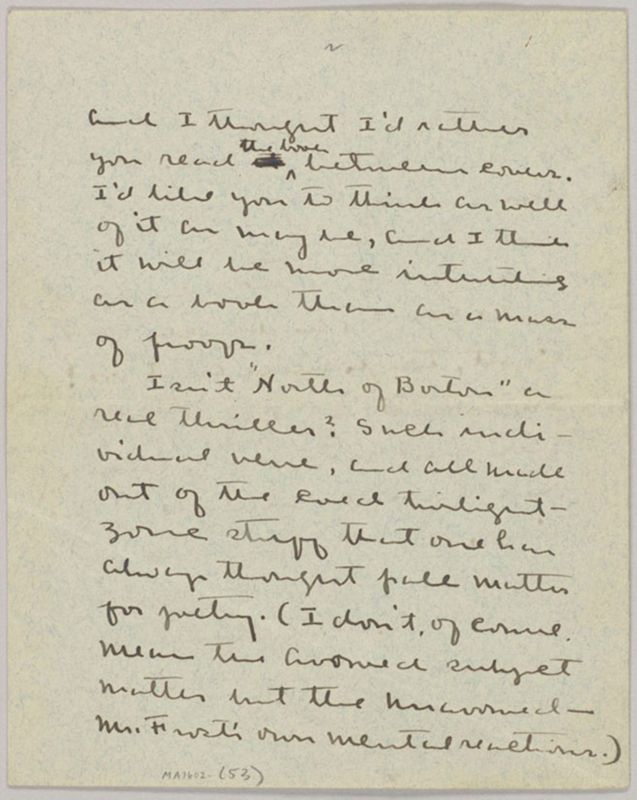 2
and I thought I'd rather
the book
you read between covers.
I'd like you to think as well
of it as may be, and I think
it will be more interesting
as a book than as a mass
of proofs.
Isn't "North of Boston" a
real thriller? Such indi-
vidual verse, and all made
out of the cold twilight-
zone stuff that one has
always thought pale matter
for poetry. (I don't, of course,
mean the avowed subject
matter but the unavowed—
Mr. Frost's own mental reactions.)
MA1602-(53)